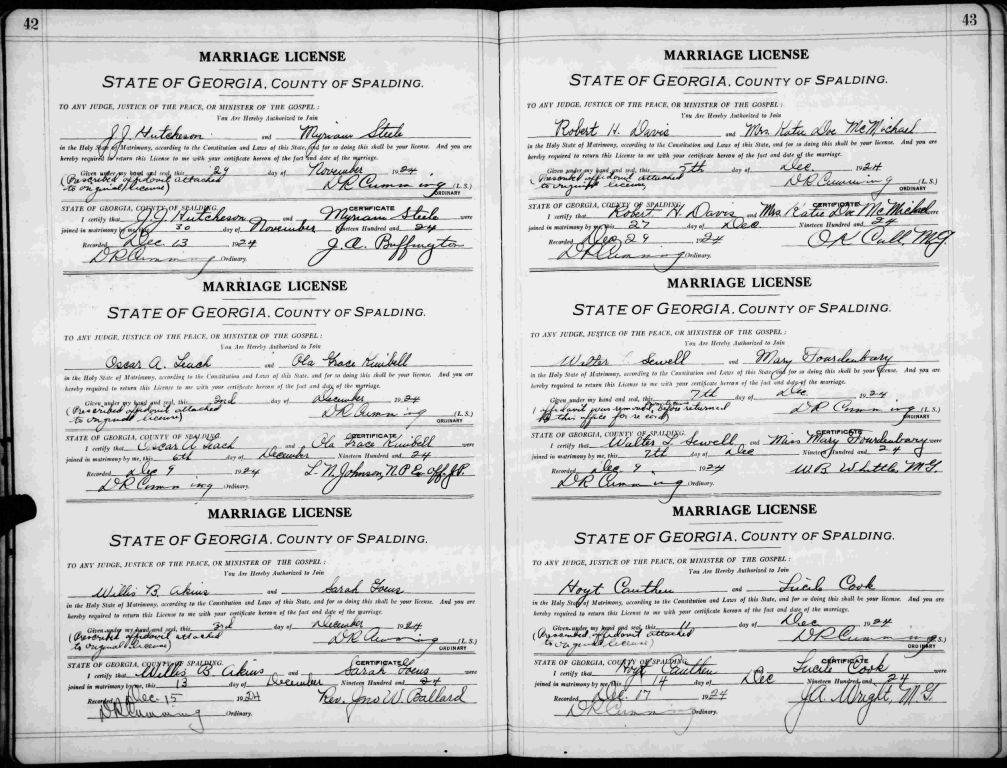 42
MARRIAGE LICENSE
STATE OF GEORGIA, COUNTY OF SPALDING.
TO ANY JUDGE, JUSTICE OF THE PEACE, OR MINISTER OF THE GOSPEL:
You Are Hereby Authorized to Join
J.J. Hutcheson and Myriam Steele
in the Holy State of Matrimony, according to the Constitution and Laws of this State, and for so doing this shall be your license. And you are
hereby required to return this License to me with your certificate hereon of the fact and date of the marriage.
Given under my hand and seal, this 29 day of November 1924
(Prescribed affidavit attached
to original license) D R Cumming (L. S.)
ORDINARY
STATE OF GEORGIA, COUNTY OF SPALDING. CERTIFICATE
I certify that J.J. Hutcheson and Myriam Steele were
joined in matrimony by me, this 30 day of November Nineteen Hundred and 24
Recorded Dec 13 1924 J. A. Buffington
D R Cumming Ordinary.
MARRIAGE LICENSE
STATE OF GEORGIA, COUNTY OF SPALDING.
TO ANY JUDGE, JUSTICE OF THE PEACE, OR MINISTER OF THE GOSPEL:
You Are Hereby Authorized to Join
Oscar A. Leach and Ola Grace Kimbell
in the Holy State of Matrimony, according to the Constitution and Laws of this State, and for so doing this shall be your license. And you are
hereby required to return this License to me with your certificate hereon of the fact and date of the marriage.
Given under my hand and seal, this 2nd day of December 1924
(Prescribed affidavit attached
to original license) D R Cumming (L. S.)
ORDINARY
STATE OF GEORGIA, COUNTY OF SPALDING. CERTIFICATE
I certify that Oscar A Leach and Ola Grace Kimbell were
joined in matrimony by me, this 6th day of December Nineteen Hundred and 24
Recorded Dec 9 1924 L. N Johnson, N P Ex off J.P.
D R Cumming Ordinary.
MARRIAGE LICENSE
STATE OF GEORGIA, COUNTY OF SPALDING.
TO ANY JUDGE, JUSTICE OF THE PEACE, OR MINISTER OF THE GOSPEL:
You Are Hereby Authorized to Join
Willis B. Akins and Sarah Fous
in the Holy State of Matrimony, according to the Constitution and Laws of this State, and for so doing this shall be your license. And you are
hereby required to return this License to me with your certificate hereon of the fact and date of the marriage.
Given under my hand and seal, this 3rd day of December 1924
(Prescribed affidavit attached
to original license) D R Cumming (L. S.)
ORDINARY
STATE OF GEORGIA, COUNTY OF SPALDING. CERTIFICATE
I certify that Willis B. Akins and Sarah Fous were
joined in matrimony by me, this 13 day of December Nineteen Hundred and 24
Recorded Dec 15 1924 Rev. Jno W. Ballard
D R Cumming Ordinary.
43
MARRIAGE LICENSE
STATE OF GEORGIA, COUNTY OF SPALDING.
TO ANY JUDGE, JUSTICE OF THE PEACE, OR MINISTER OF THE GOSPEL:
You Are Hereby Authorized to Join
Robert H. Davis and Mrs. Katie Doe McMichael
in the Holy State of Matrimony, according to the Constitution and Laws of this State, and for so doing this shall be your license. And you are
hereby required to return this License to me with your certificate hereon of the fact and date of the marriage.
Given under my hand and seal, this 5th day of Dec. 1924
(Prescribed affidavit attached
to original license) D R Cumming (L. S.)
ORDINARY
STATE OF GEORGIA, COUNTY OF SPALDING. CERTIFICATE
I certify that Robert H. Davis and Mrs Katie Doe McMichael were
joined in matrimony by me, this 27 day of Dec. Nineteen Hundred and 24
Recorded Dec 29 1924 M G
D R Cumming Ordinary.
MARRIAGE LICENSE
STATE OF GEORGIA, COUNTY OF SPALDING.
TO ANY JUDGE, JUSTICE OF THE PEACE, OR MINISTER OF THE GOSPEL:
You Are Hereby Authorized to Join
Walter Sewell and Mary Fourdenbary
in the Holy State of Matrimony, according to the Constitution and Laws of this State, and for so doing this shall be your license. And you are
hereby required to return this License to me with your certificate hereon of the fact and date of the marriage.
Given under my hand and seal, this 7th day of Dec 1924
(affidavit was removed before returned
to this office for record) D R Cumming (L. S.)
ORDINARY
STATE OF GEORGIA, COUNTY OF SPALDING. CERTIFICATE
I certify that Walter Sewell and Miss Mary Fourdenbary were
joined in matrimony by me, this 7th day of Dec Nineteen Hundred and 24
Recorded Dec 9 1924 W B Whittle, M.G.
D R Cumming Ordinary.
MARRIAGE LICENSE
STATE OF GEORGIA, COUNTY OF SPALDING.
TO ANY JUDGE, JUSTICE OF THE PEACE, OR MINISTER OF THE GOSPEL:
You Are Hereby Authorized to Join
Hoyt Cauthen and Lucile Cook
in the Holy State of Matrimony, according to the Constitution and Laws of this State, and for so doing this shall be your license. And you are
hereby required to return this License to me with your certificate hereon of the fact and date of the marriage.
Given under my hand and seal, this 11 day of Dec 1924
(Prescribed affidavit attached
to original license) D R Cumming (L. S.)
ORDINARY
STATE OF GEORGIA, COUNTY OF SPALDING. CERTIFICATE
I certify that Hoyt Cauthen and Lucile Cook were
joined in matrimony by me, this 14 day of Dec Nineteen Hundred and 24
Recorded Dec. 17 1924 J A Wright, M. G.
D R Cumming Ordinary.